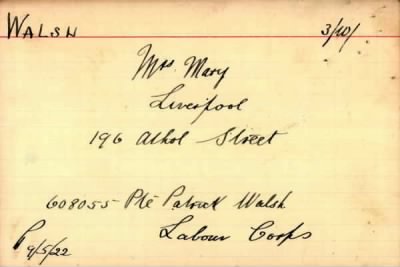 WALSH 3/10/
Mrs. Mary
Liverpool
196 Athol Street
608055 - Pte Patrick Walsh
Labour Corps
P 9/5/22